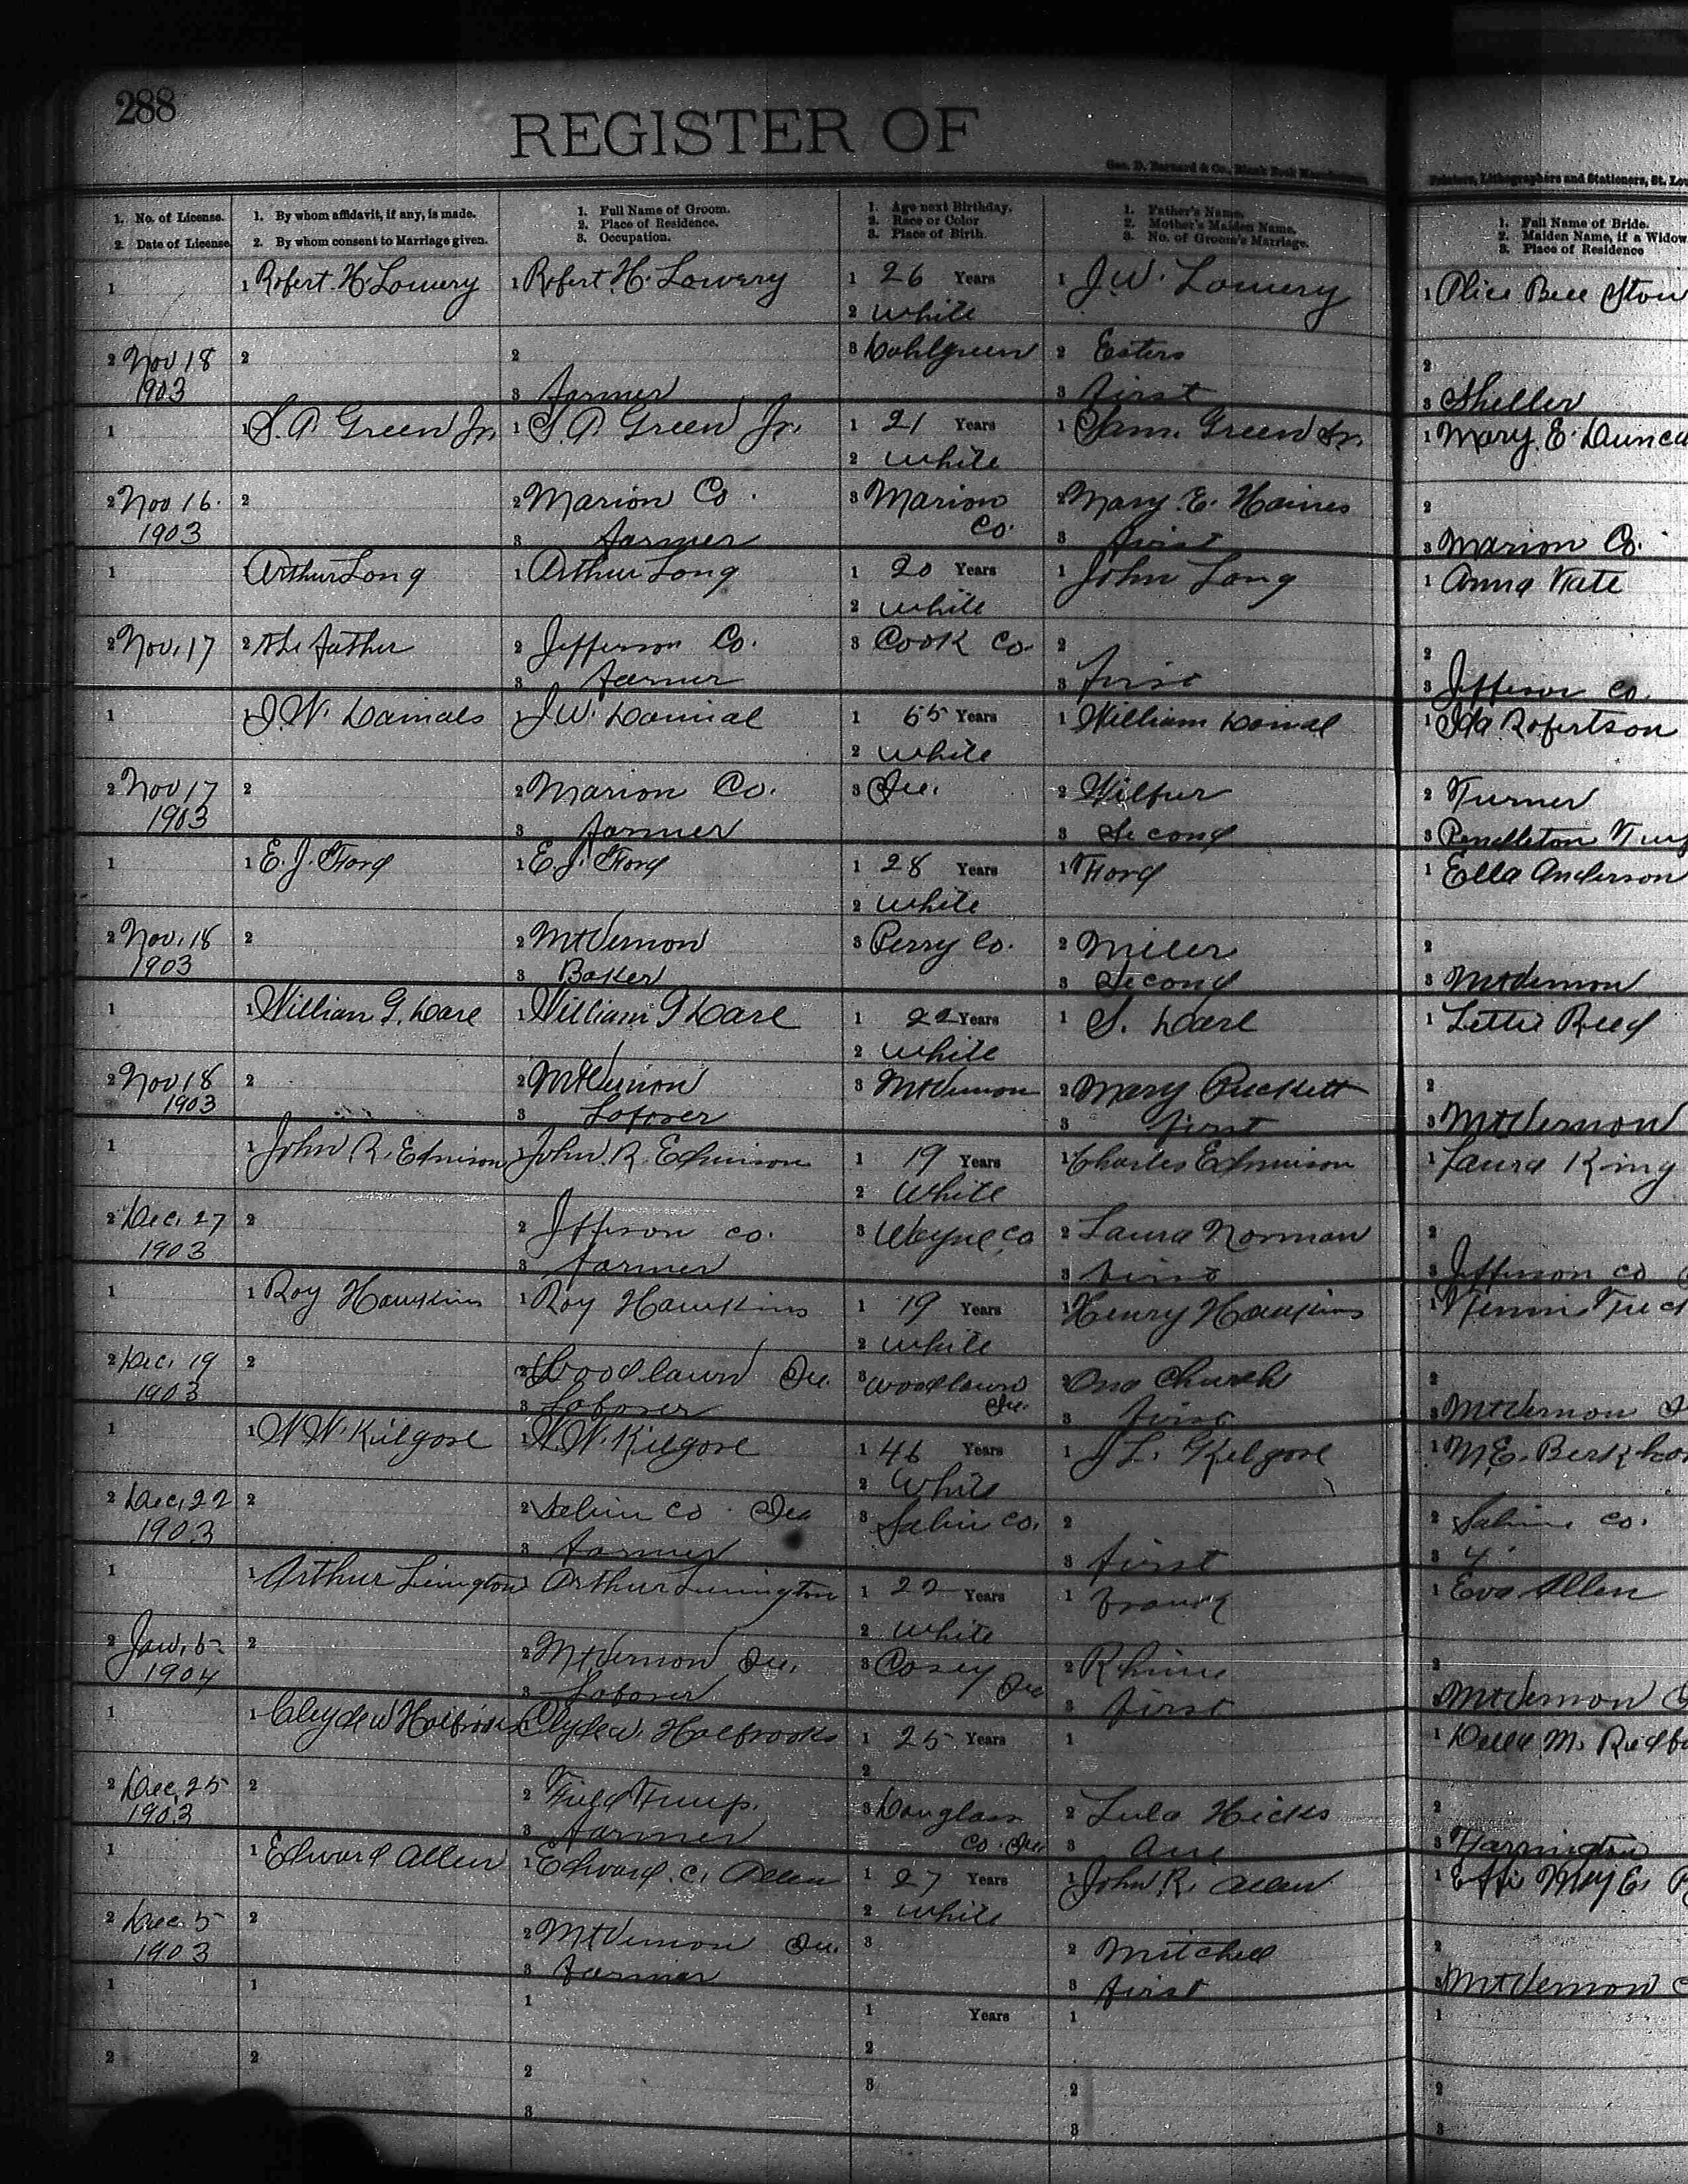 288
REGISTER OF
Geo. D. Barnard & Co., Blank Book Manufacturers,
Printers, Lithographers and Stationers, St. Lou
1. No. of License.
2. Date of License.
1. By whom affidavit, if any, is made.
2. By whom consent to Marriage given.
1. Full Name of Groom.
2. Place of Residence.
3. Occupation.
1. Age next Birthday.
2. Race or Color
3. Place of Birth.
1. Father's Name.
2. Mother's Maiden Name.
3. No. of Groom's Marriage.
1. Full Name of Bride.
2. Maiden Name, if a Widow
3. Place of Residence
1
2 Nov 18
1903
1 Robert H. Lowery
2
1 Robert H. Lowery
2
3 farmer
1 26 Years
2 White
3 Dahlgreen
1 J W. Lowery
2 Esters
3 first
1 Alice Bell Stow
2
3 Sheller
1
2 Nov 16.
1903
1 S. A Green Jr.
2
1 S A Green Jr.
2 Marion Co.
3 farmer
1 21 Years
2 White
3 Marion
Co.
1 Sam. Green Sr.
2 Mary. E. Haines
3 first
1 Mary. E. Dunca
2
3 Marion Co.
1
2 Nov. 17
Arthur Long
2 the father
1 Arthur Long
2 Jefferson Co.
3 farmer
1 20 Years
2 White
3 Cook Co.
1 John Long
2
3 first
1 Anna Tate
2
3 Jeffeson Co.
1
2 Nov 17
1903
1 J. W. Damals
2
1 J W. Damial
2 Marion Co.
3 farmer
1 65 Years
2 White
3 Ill.
1 William Damal
2 Wilbur
3 Second
1 Ida Robertson
2 Turner
3 Pendleton Twp
1
2 Nov. 18
1903
1 E. J. Ford
2
1 E. J. Ford
2 Mt Vernon
3 Baker
1 28 Years
2 White
3 Perry Co.
1 Ford
2 Miller
3 Second
1 Ella Anderson
2
3 Mt Vernon
1
2 Nov 18
1903
1 William G. Dare
2
1 William G Dare
2 Mt Vernon
3 Laborer
1 22 Years
2 White
3 Mt Vernon
1 S. Dare
2 Mary Puckett
3 first
1 Lettie Reed
2
3 Mt Vernon
1
2 Dec. 27
1903
1 John R. Edmison
2
1 John R Edmison
2 Jefferson co.
3 farmer
1 19 Years
2 White
3 Wayne Co
1 Charles Edmison
2 Laura Norman
3 first
1 Laura King
2
3 Jefferson co
1
2 Dec. 19
1903
1 Roy Hawkins
2
1 Roy Hawkins
2 Woodlawn Ill.
3 Laborer
1 19 Years
2 White
3 Woodlawn
Ill.
1 Henry Hawkins
2 Ona Church
3 first
1
2
3 Mt Vernon
1
2 Dec, 22
1903
1 W W. Kilgore
2
1 W. W. Kilgore
2 Co
3 farmer
1 46 Years
2 White
3 Co.
1 J L. Kilgore
2
3 first
1 M E. Berkho
2 Co.
3 4
1
2 Jan. 5
1904
1 Arthur Linington
2
Arthur Linnington
2 Mt Vernon Ill.
3 Laborer
1 22 Years
2 White
3 Casey
Ill
1 Frank
2 Rhine
3 first
1 Eva Allen
2
3 Mt Vernon
1
2 Dec, 25
1903
1 Clyde W Holbrooks
2
Clyde W. Holbrooks
2 Field Twp.
3 farmer
1 25 Years
2
3 Douglass
Co. Ill.
1
2 Lula Hicks
3 One
1 Della M. Redbu
2
3 Harrington
1
2 Dec. 5
1903
1 Edward Allen
2
1 Edward. C. Allen
2 Mt Vernon Ill.
3 farmer
1 27 Years
2 White
3
1 John R. Allen
2 Mitchell
3 first
1 Effi May E.
2
3 Mt Vernon
1
2
1
2
1
2
3
1 Years
2
3
1
2
3
1
2
3